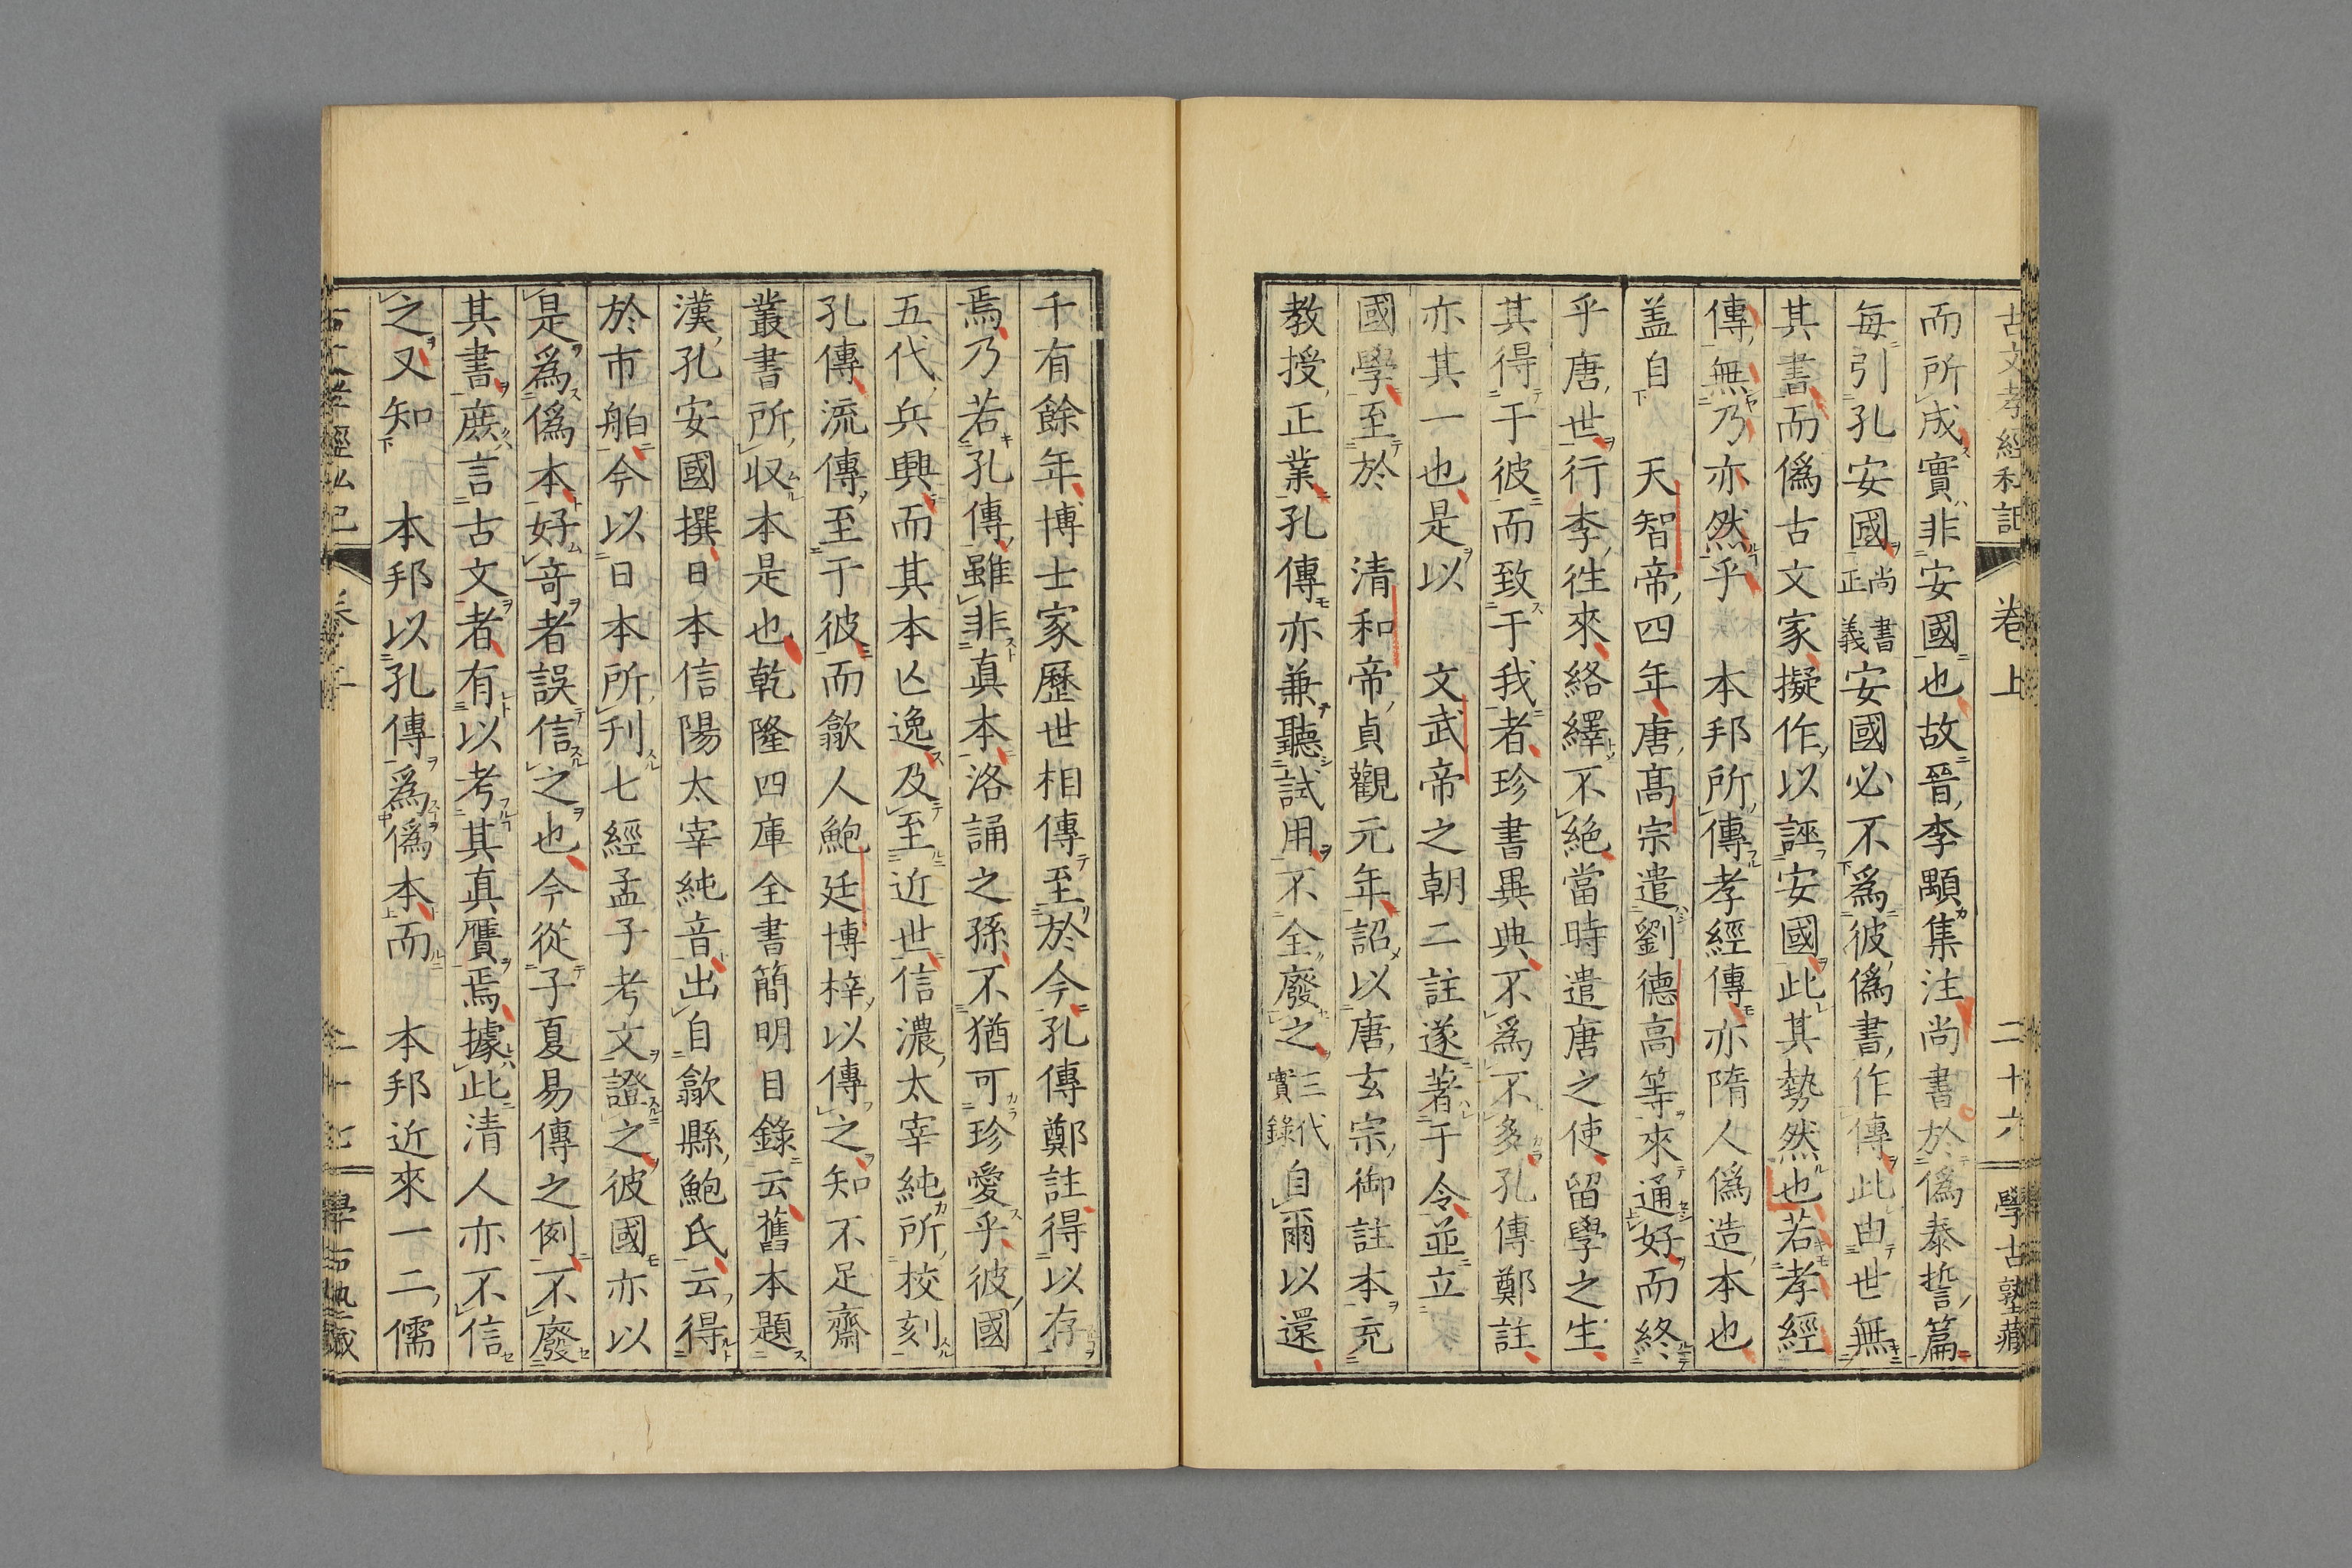 古文孝經私記 卷上 二十六 學古塾藏
而所成實非安國也故晉李顒集注尚書於僞泰誓篇
每引孔安國尚書正義安國必不爲彼僞書作傳此由世無
其書而僞古文家擬作以誣安國此其勢然也若孝經
傳無乃亦然乎 本邦所傳孝經傳亦隋人僞造本也
盖自 天智帝四年唐髙宗遣劉德高等來通好而終
乎唐世行李徃來絡繹不絶當時遣唐之使留學之生
其得于彼而致于我者珍書異典不爲不多孔傳鄭註
亦其一也是以 文武帝之朝二註遂著于令並立
國學至於 清和帝貞觀元年詔以唐玄宗御註本充
教授正業孔傳亦兼聽試用不全廢之三代實錄自爾以還
千有餘年博士家歷世相傳至於今孔傳鄭註得以存
焉乃若孔傳雖非真本洛誦之孫不猶可珍愛乎彼國
五代兵興而其本亾逸及至近世信濃太宰純所校刻
孔傳流傳至于彼而歙人鮑廷博梓以傳之知不足齋
叢書所収本是也乾隆四庫全書簡明目錄云舊本題
漢孔安國撰日本信陽太宰純音出自歙縣鮑氏云得
於市舶今以日本所刋七經孟子考文證之彼國亦以
是爲僞本好竒者誤信之也今從子夏易傳之例不廢
其書庶言古文者有以考其真贋焉據此清人亦不信
之又知 本邦以孔傳爲僞本而 本邦近來一二儒